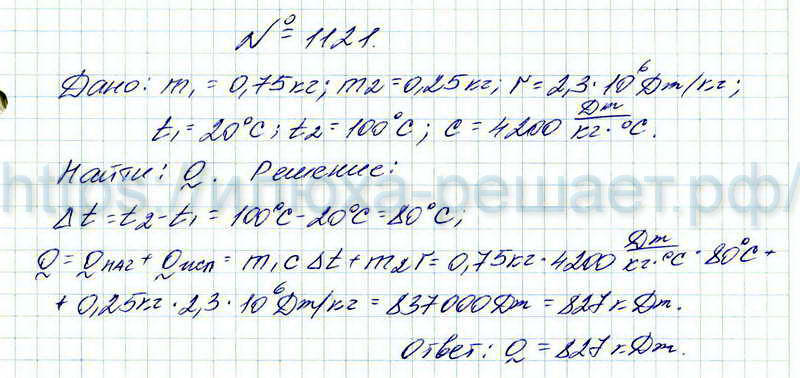 № 1121.
Дано: m₁ = 0,75кг; m2 = 0,25кг; r = 2,3·10⁶ Дж/кг;
t₁ = 20°С; t2 = 100°С; c = 4200 Дж/кг·°С.
Найти: Q. Решение:
Δt = t2 - t₁ = 100°С - 20°С = 80°С;
Q = Qнаг + Qисп = m₁ c Δt + m2 r = 0,75кг · 4200 Дж/кг·°С · 80°С +
+ 0,25кг · 2,3 · 10⁶ Дж/кг = 837000 Дж = 827 кДж.
Ответ: Q = 827 кДж.
https://илюха-решает.рф/